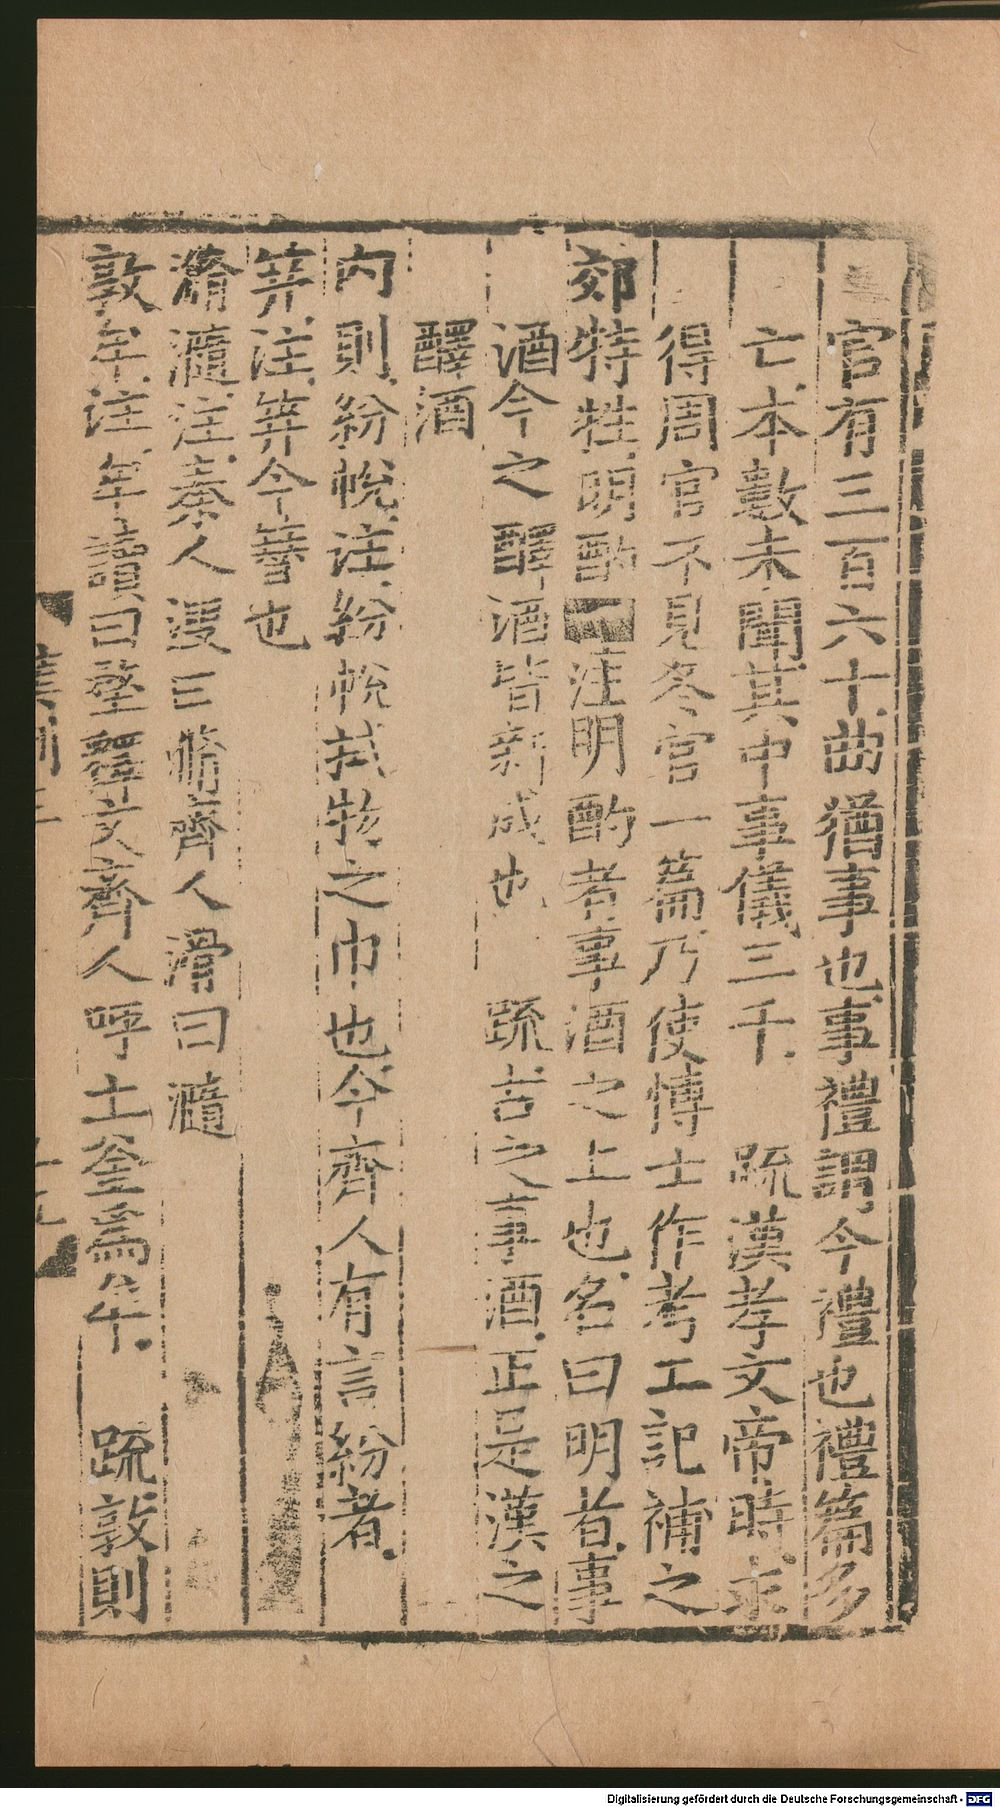 官有三百六十曲猶事也事禮謂今禮也禮篇多
亡本數未聞其中事儀三千 疏漢孝文帝時求
得周官不見冬官一篇乃使博士作考工記補之
郊特牲明酌 注明酌者事酒之上也名曰明者事
酒今之醳酒皆新成也 疏古之事酒正是漢之
醳酒
內則紛帨注紛帨拭物之巾也今齊人有言紛者
笄注笄今簪也
滫瀡注秦人溲曰滫齊人滑曰瀡
敦牟注牟讀曰堥釋文齊人呼土釜為牟 疏敦則
Digitalisierung gefördert durch die Deutsche Forschungsgemeinschaft - DFG